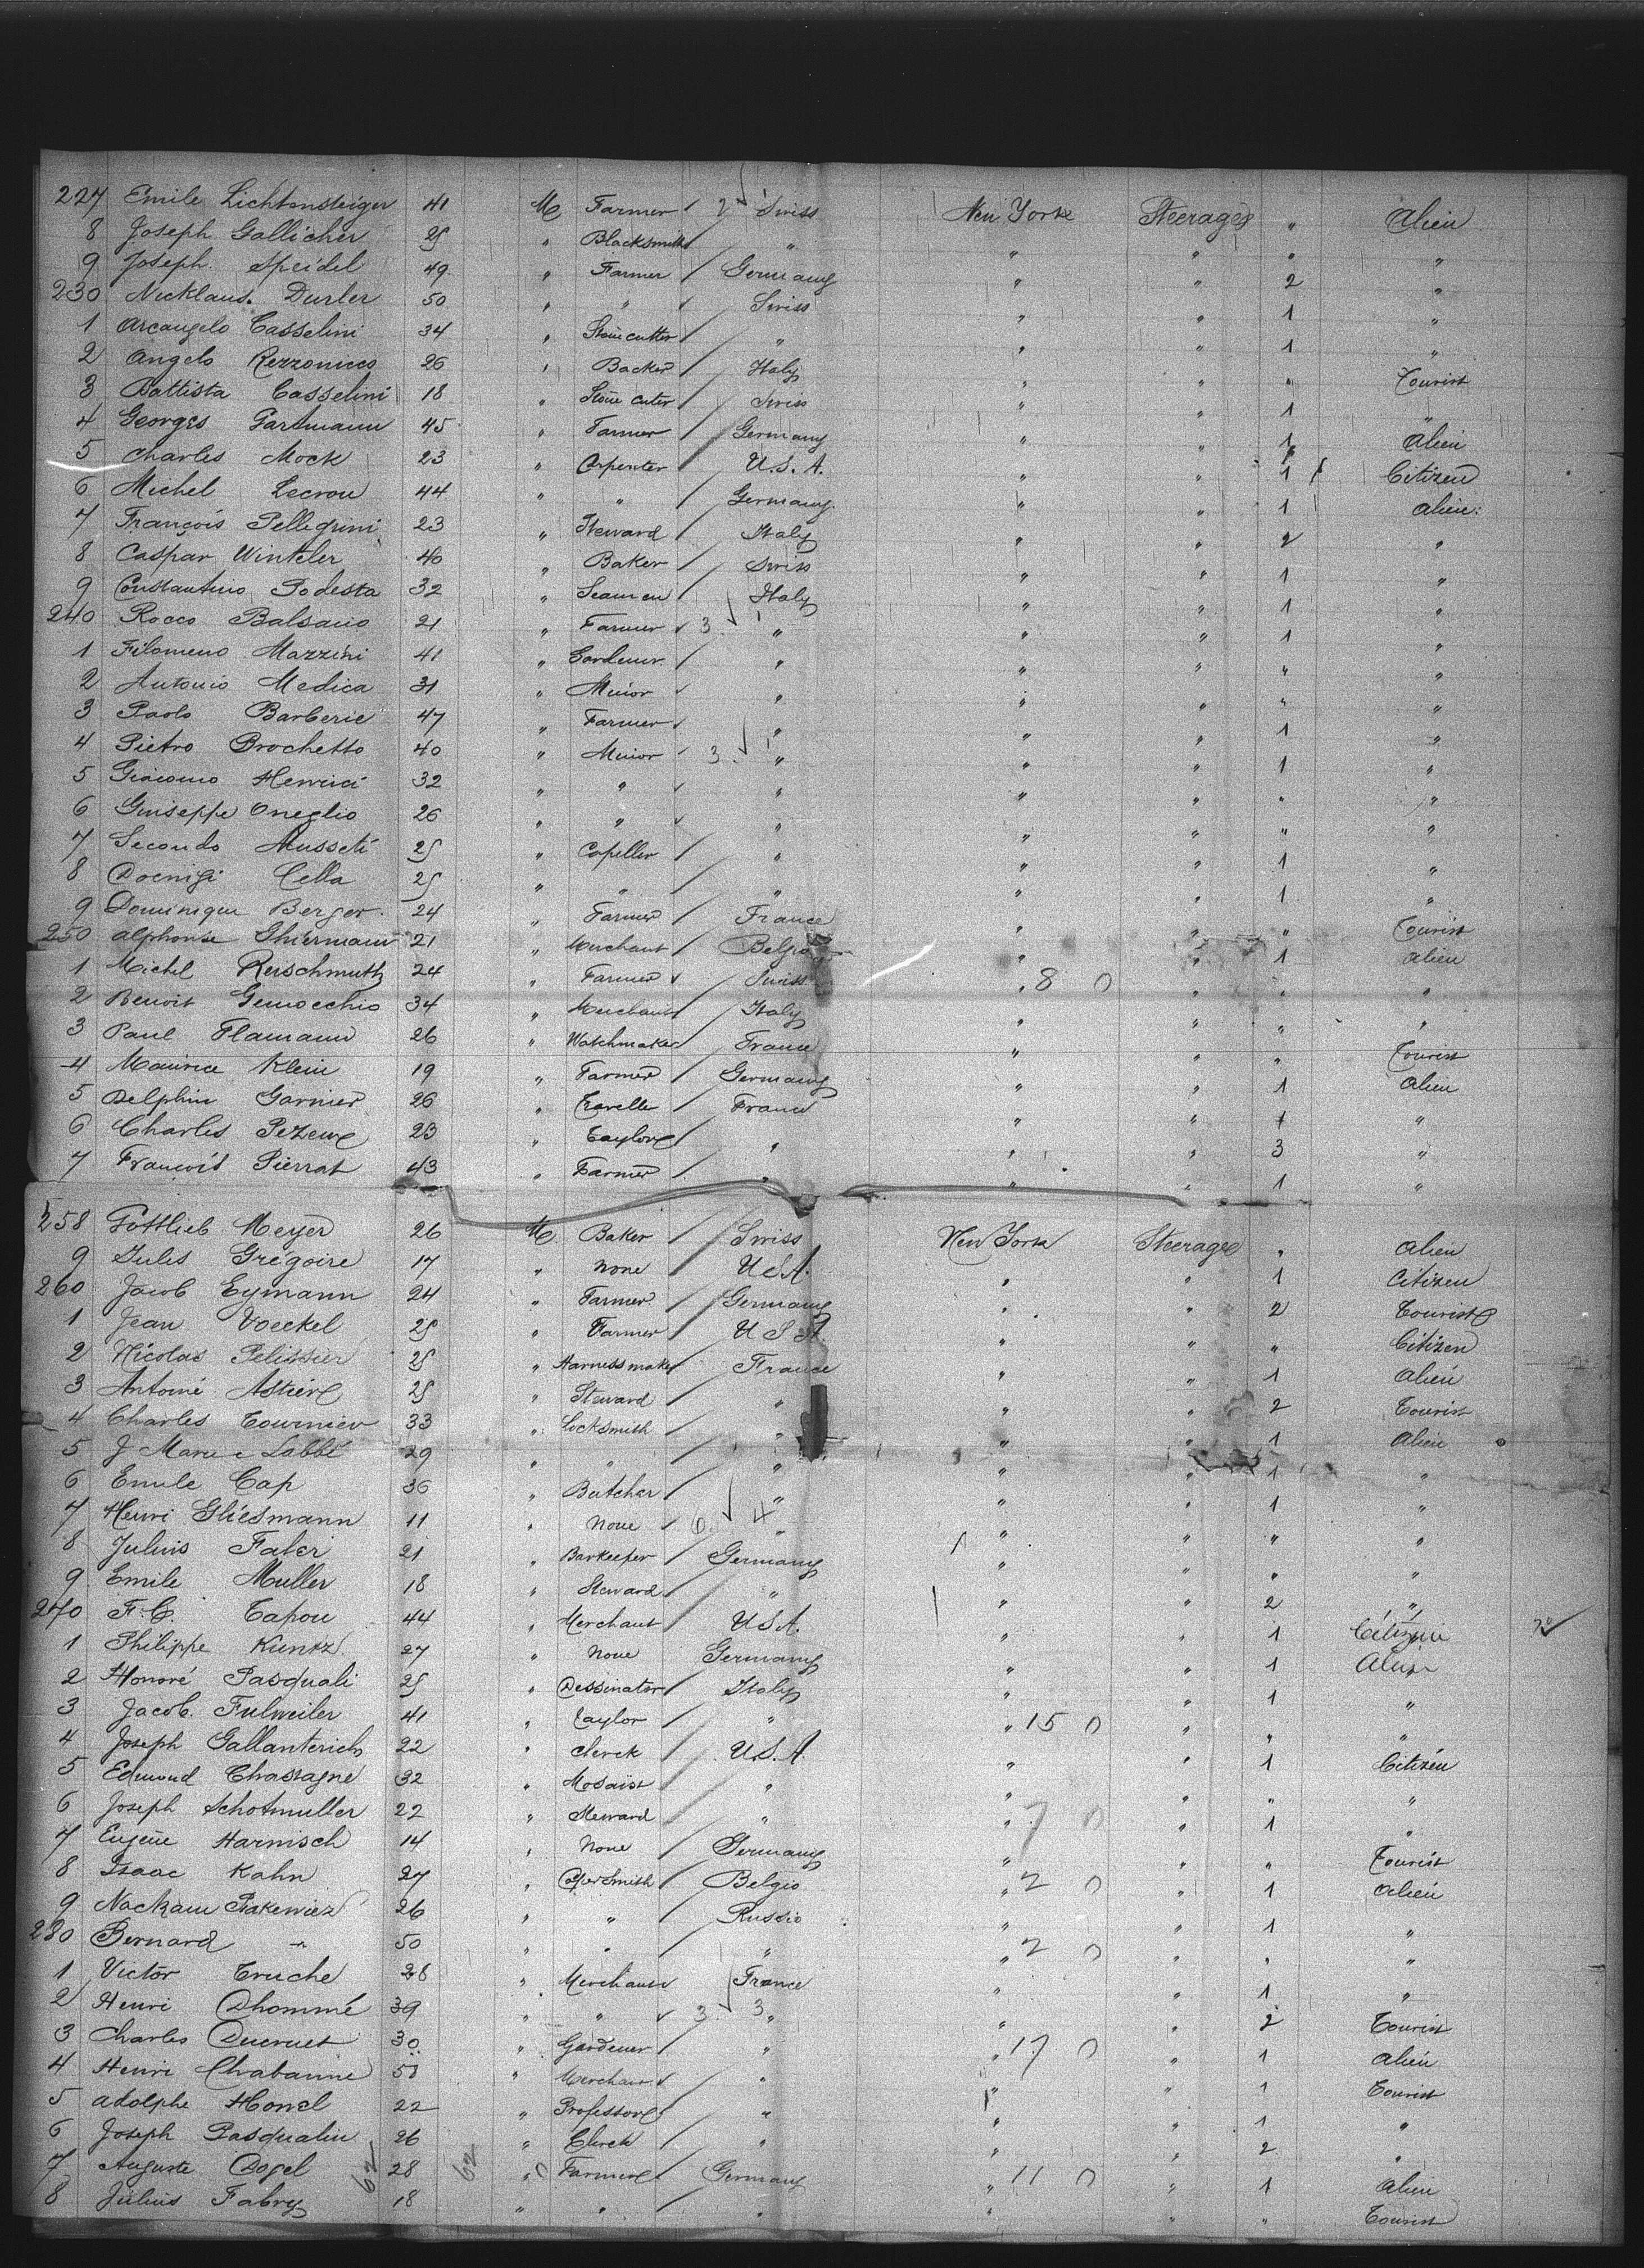 227 Emile Lichtensteiger 41 M Farmer 2 Swiss New York Steerage " Alien
8 Joseph Gallicher 25 " Blacksmith " " " " "
9 Joseph Speidel 49 " Farmer Germany " " 2 "
230 Nicklaus Durler 50 " " Swiss " " 1 "
1 Arcangelo Casselini 34 " Stone cutter " " " 1 "
2 Angelo Rezzonicco 26 " Backer Italy " " " Tourist
3 Battista Casselini 18 " Stone cuter Swiss " " 1 "
4 Georges Gartmann 45 " Farmer Germany " " 1 Alien
5 Charles Mock 23 " Carpenter U.S.A. " " 1 Citizen
6 Michel Lecrou 44 " " Germany " " 1 Alien
7 François Pellegrini 23 " Steward Italy " " 2 "
8 Caspar Winteler 40 " Baker Swiss " " 1 "
9 Constantino Podesta 32 " Seamen Italy " " 1 "
240 Rocco Balsano 21 " Farmer 3 " " " 1 "
1 Filomeno Mazzini 41 " Gardenner " " " " "
2 Antonio Medica 31 " Minor " " " " "
3 Paolo Barberie 47 " Farmer " " " 1 "
4 Pietro Brochetto 40 " Minor 3 " " " 1 "
5 Giacomo Henrici 32 " " " " " " "
6 Guiseppe Oneglio 26 " " " " " " "
7 Secondo Musseti 25 " Capeller " " " 1 "
8 Doenigi Cella 25 " " " " " 1 "
9 Dominique Berger 24 " Farmer France " " " Tourist
250 Alphonse Thiermann 21 " Merchant Belgio " " 1 Alien
1 Michel Reischmuth 24 " Farmer Swiss " 8 0 " " "
2 Benoit Genocchio 34 " Merchant Italy " " " "
3 Paul Flamann 26 " Watchmaker France " " " Tourist
4 Maurice Klein 19 " Farmer Germany " " 1 Alien
5 Delphin Garnier 26 " France " " 1 "
6 Charles 23 " Taylor " " " 3 "
7 François Pierrat 43 " Farmer " " " 1 "
258 Gottlieb Meyer 26 M Baker Swiss New York Steerage " Alien
9 Jules Grégoire 17 " None U.S.A. " " 1 Citizen
260 Jacob Eymann 24 " Farmer Germany " " 2 Tourist
1 Jean Voeckel 25 " Farmer U S A. " " " Citizen
2 Nicolas Pelissier 25 " Harnessmaker France " " 1 Alien
3 Antoine Astier 25 " Steward " " " 2 Tourist
4 Charles Tournier 33 " Locksmith " " " 1 Alien
5 J Marie Labbé 29 " " " " " 1 "
6 Emile Cap 36 " Butcher " " " 1 "
7 Henri Gliesmann 11 " None 6 4 " " " " "
8 Julius Faler 21 " Barkeeper Germany " " " "
9 Emile Muller 18 " Steward " " " 2 "
270 F. C. Tapou 44 " Merchant U.S.A. " " 1 Citizen
1 Philippe Kuntz 27 " None Germany " " 1 Alien
2 Honoré Pasquali 25 " Dessinator Italy " " 1 "
3 Jacob Fulweiler 41 " Taylor " " 15 0 " " "
4 Joseph Gallanterich 22 " Clerck U.S.A. " " 1 Citizen
5 Edmond Chastagne 32 " Mosaist " " " " "
6 Joseph Schotmuller 22 " Steward " " 7 0 " 1 "
7 Eugène Harnisch 14 " None Germany " " " Tourist
8 Isaac Kahn 27 " Belgio " 2 0 " 1 Alien
9 Nackam Piakewiez 26 " " Russio " " 1 "
280 Bernard " 50 " " " " 2 0 " " "
1 Victor Truche 28 " Merchant France " " 1 "
2 Henri Dhommé 39 " " 3 3 " " " 2 Tourist
3 Charles Ducruet 30 " Gardener " " 17 0 " 1 Alien
4 Henri Chabanne 50 " Merchant " " " 1 Tourist
5 Adolphe Honel 22 " Professor " " " 1 "
6 Joseph Pasqualin 26 " Clerck " " " 2 "
7 Auguste Dogel 28 62 62 " Farmer Germany " 11 0 " 1 Alien
8 Julius Fabry 18 " " " " " " Tourist